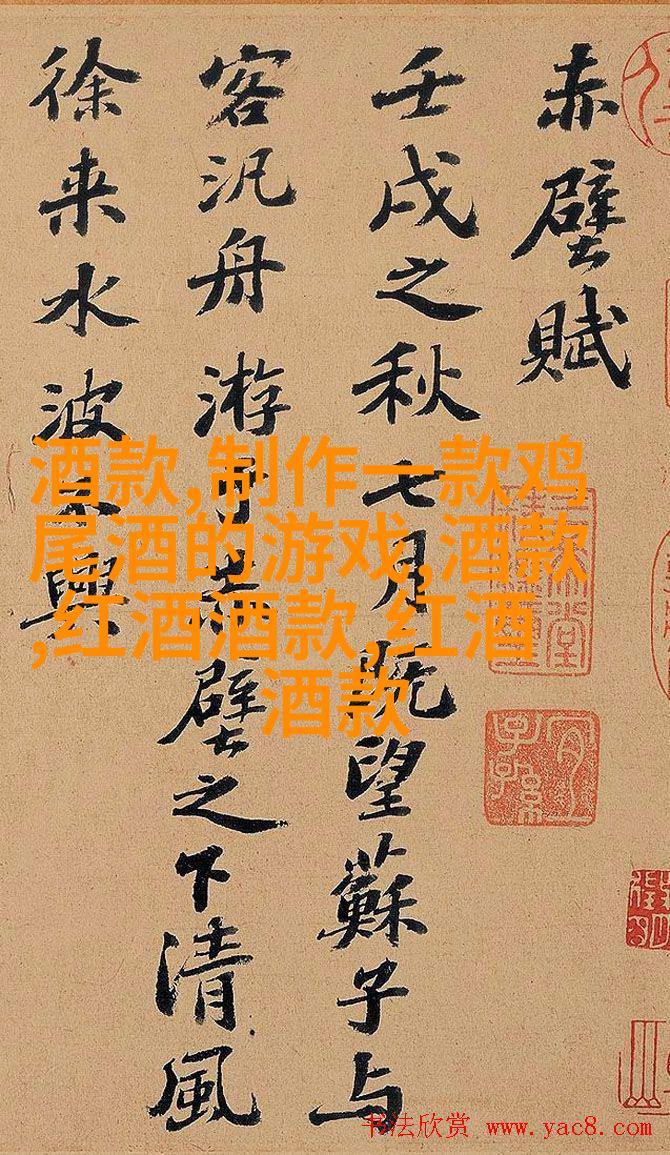 赤壁賦
壬戌之秋七月既望蘇子与
客汎舟游于赤壁之下清風
徐来水波不興
酒款,制作一款鸡
尾酒的游戏,酒款
,红酒酒款,红酒
酒款
书法欣赏 www.yac8.com